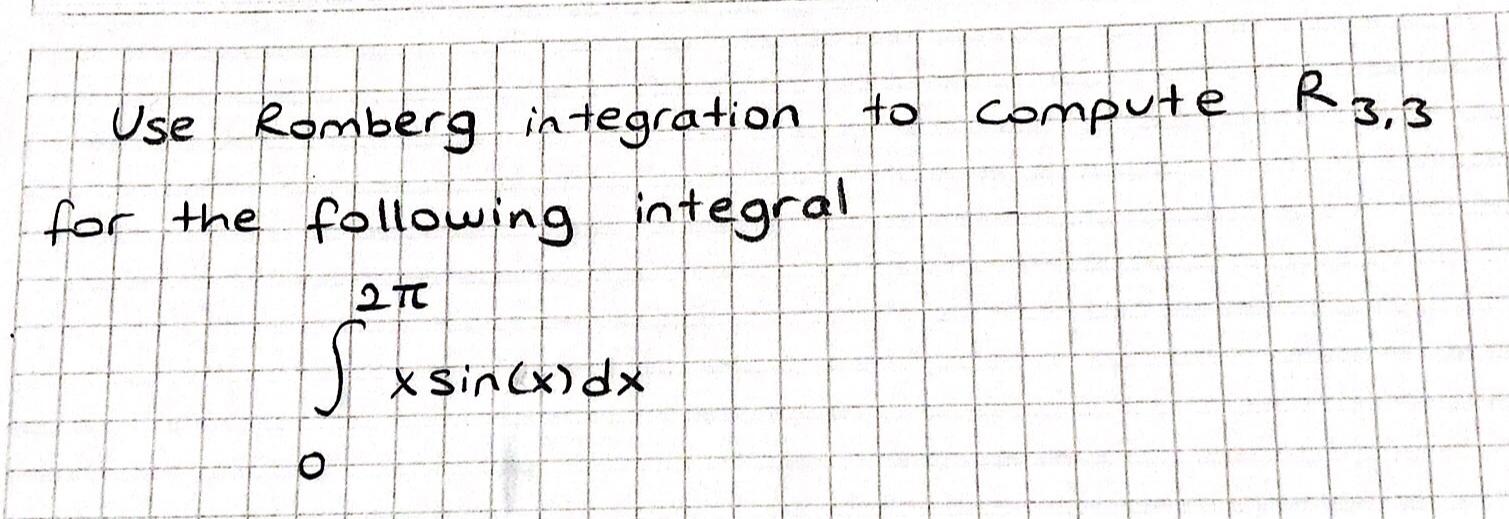 Use Romberg integration to compute R₃,₃
for the following integral
2π
∫ x sin(x) dx
0